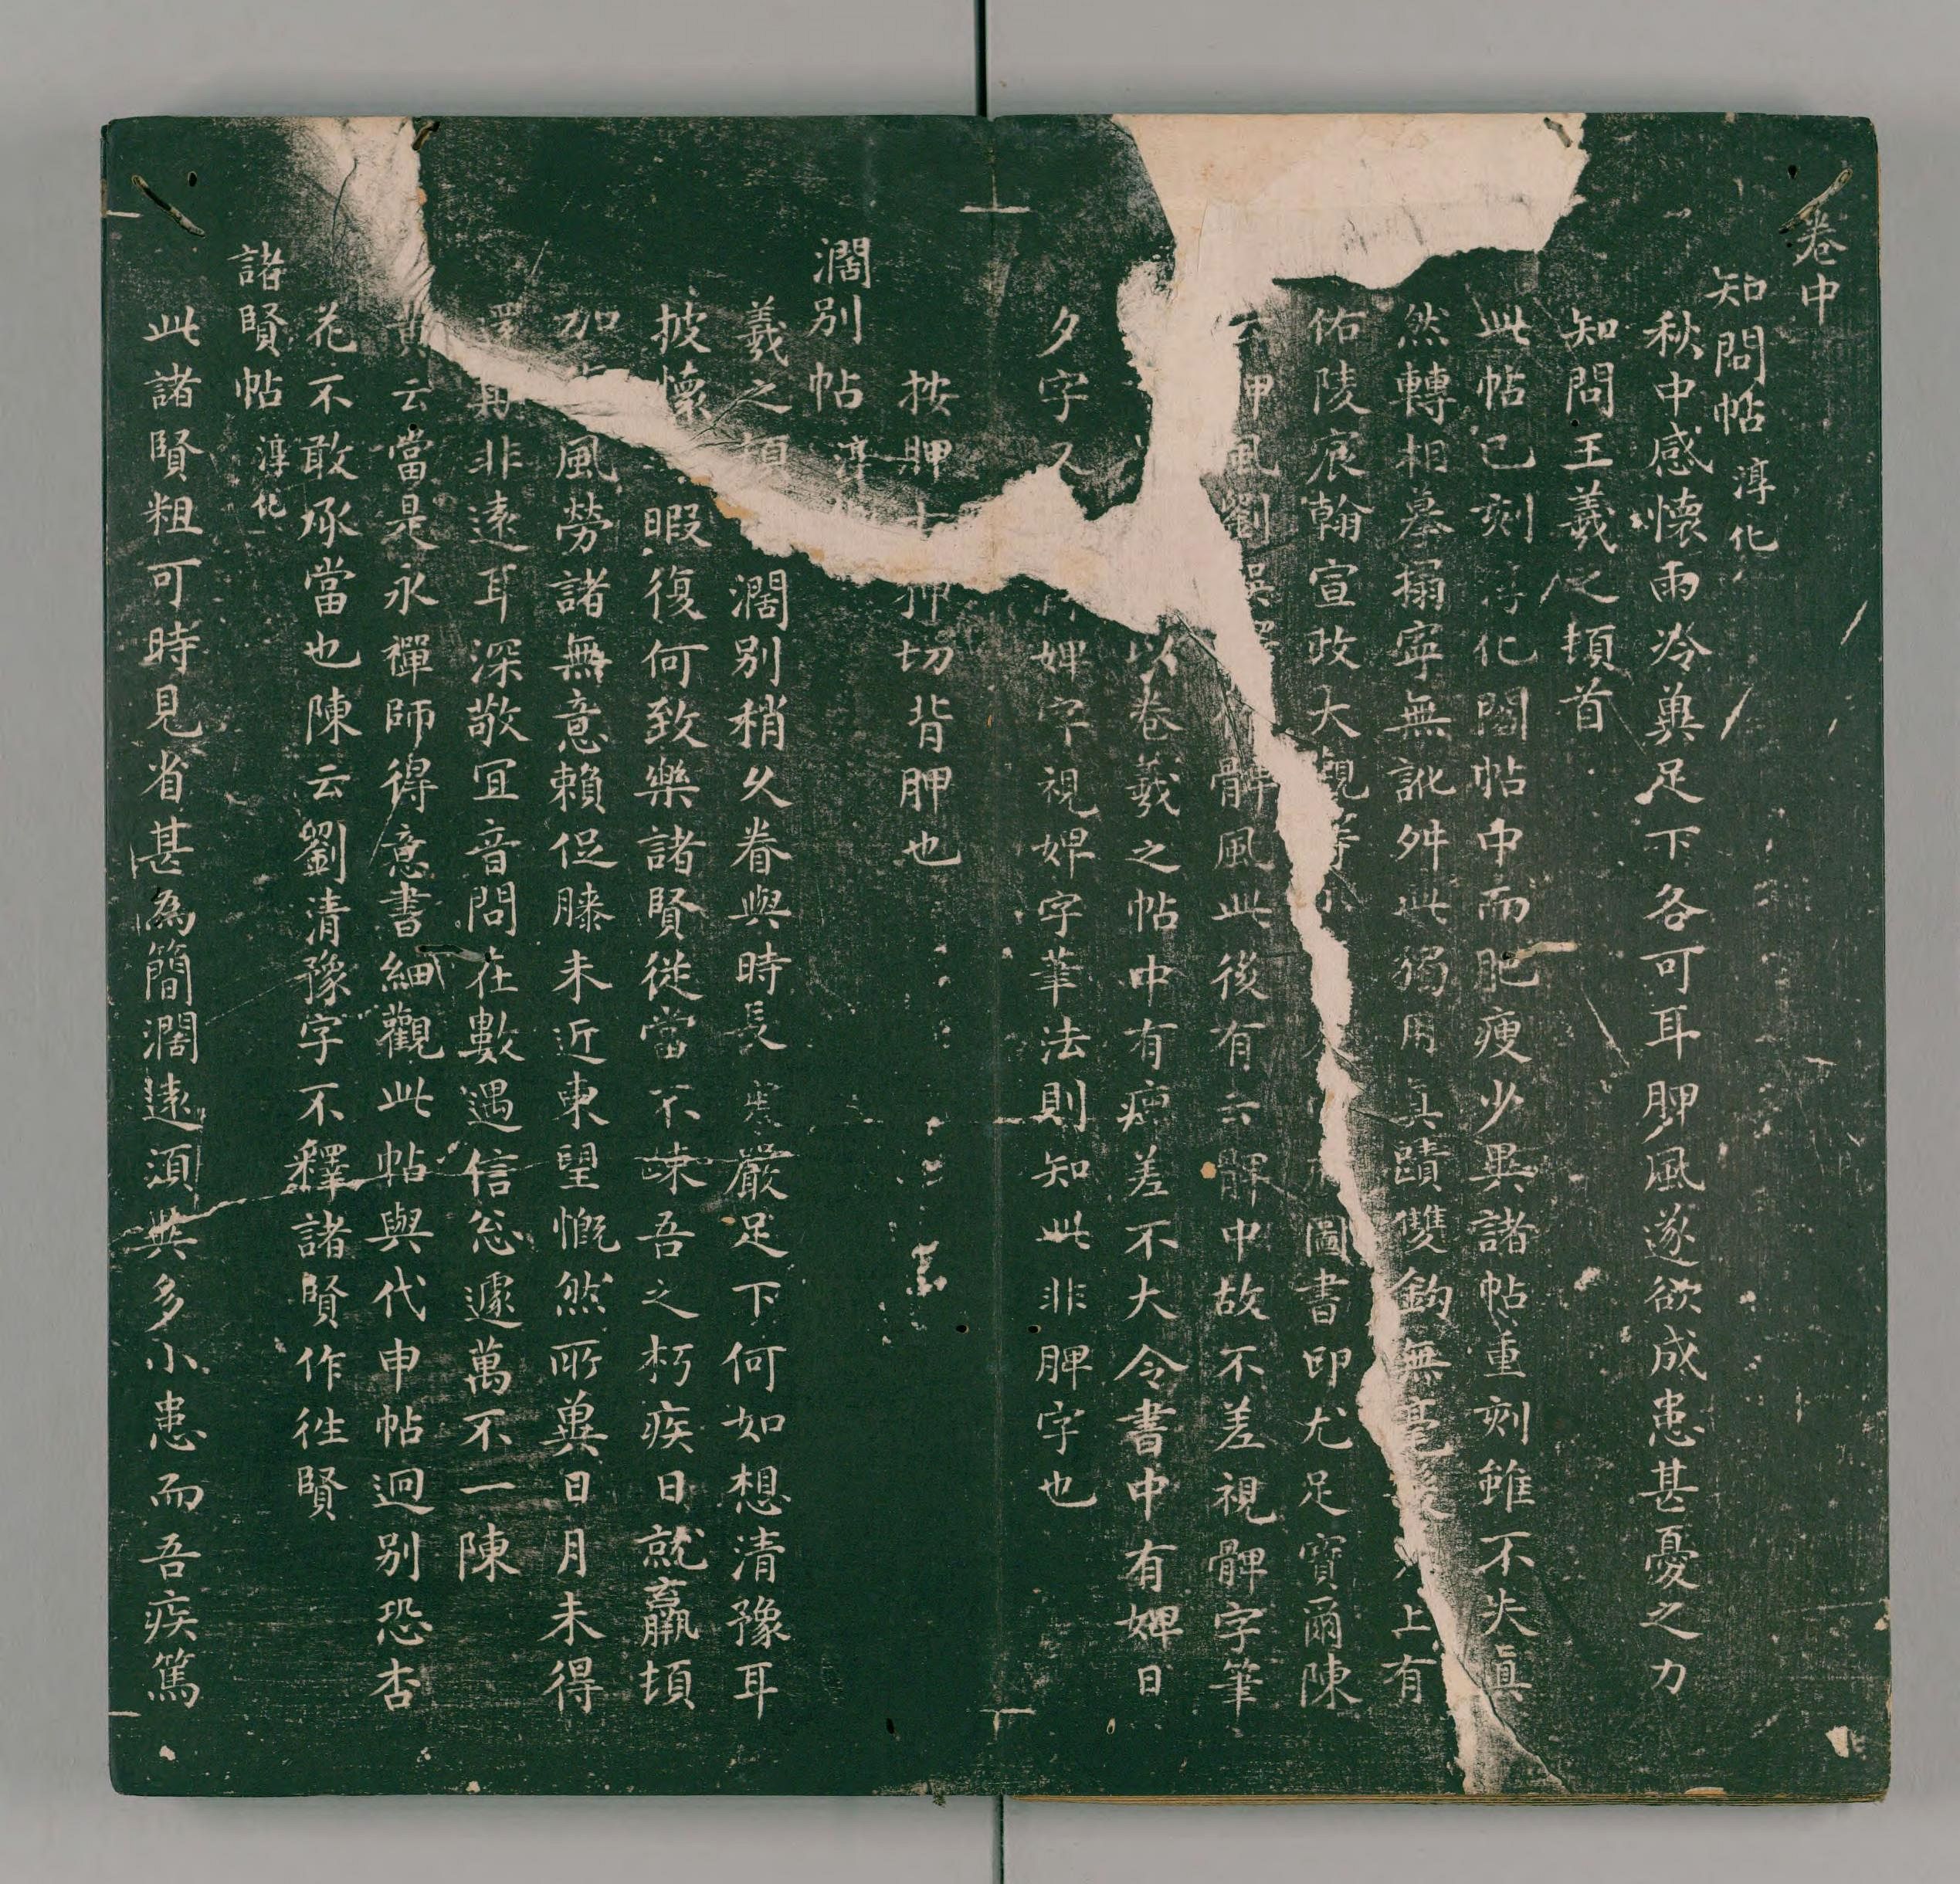 卷中
知問帖 淳化
秋中感懷雨冷兾足下各可耳胛風遂欲成患甚憂之力
知問王羲之頓首
此帖已刻淳化閣帖中而肥瘦少異諸帖重刻雖不失真
然轉相摹搨寧無訛舛此獨用真蹟雙鈎無毫 上有
佑陵宸翰宣政大觀等小 圖書印尤足寶爾陳
胛風劉 髀風此後有云髀中故不差視髀字筆
以卷羲之帖中有瘂差不大令書中有婢日
夕字又 婢字視婢字筆法則知此非脾字也
按胛 狎切背胛也
濶別帖 淳
羲之頓 濶別稍久眷與時長 嚴足下何如想清豫耳
披懷 暇復何致樂諸賢從當不踈吾之朽疾日就羸頓
加 風勞諸無意賴促膝未近東望慨然所兾日月未得
非遠耳深敬宜音問在數遇信怱遽萬不一陳
黃云當是永禪師得意書細觀此帖與代申帖迥別恐杏
花不敢承當也陳云劉清豫字不釋諸賢作徃賢
諸賢帖 淳化
此諸賢粗可時見省甚為簡濶遠湏異多小患而吾疾篤